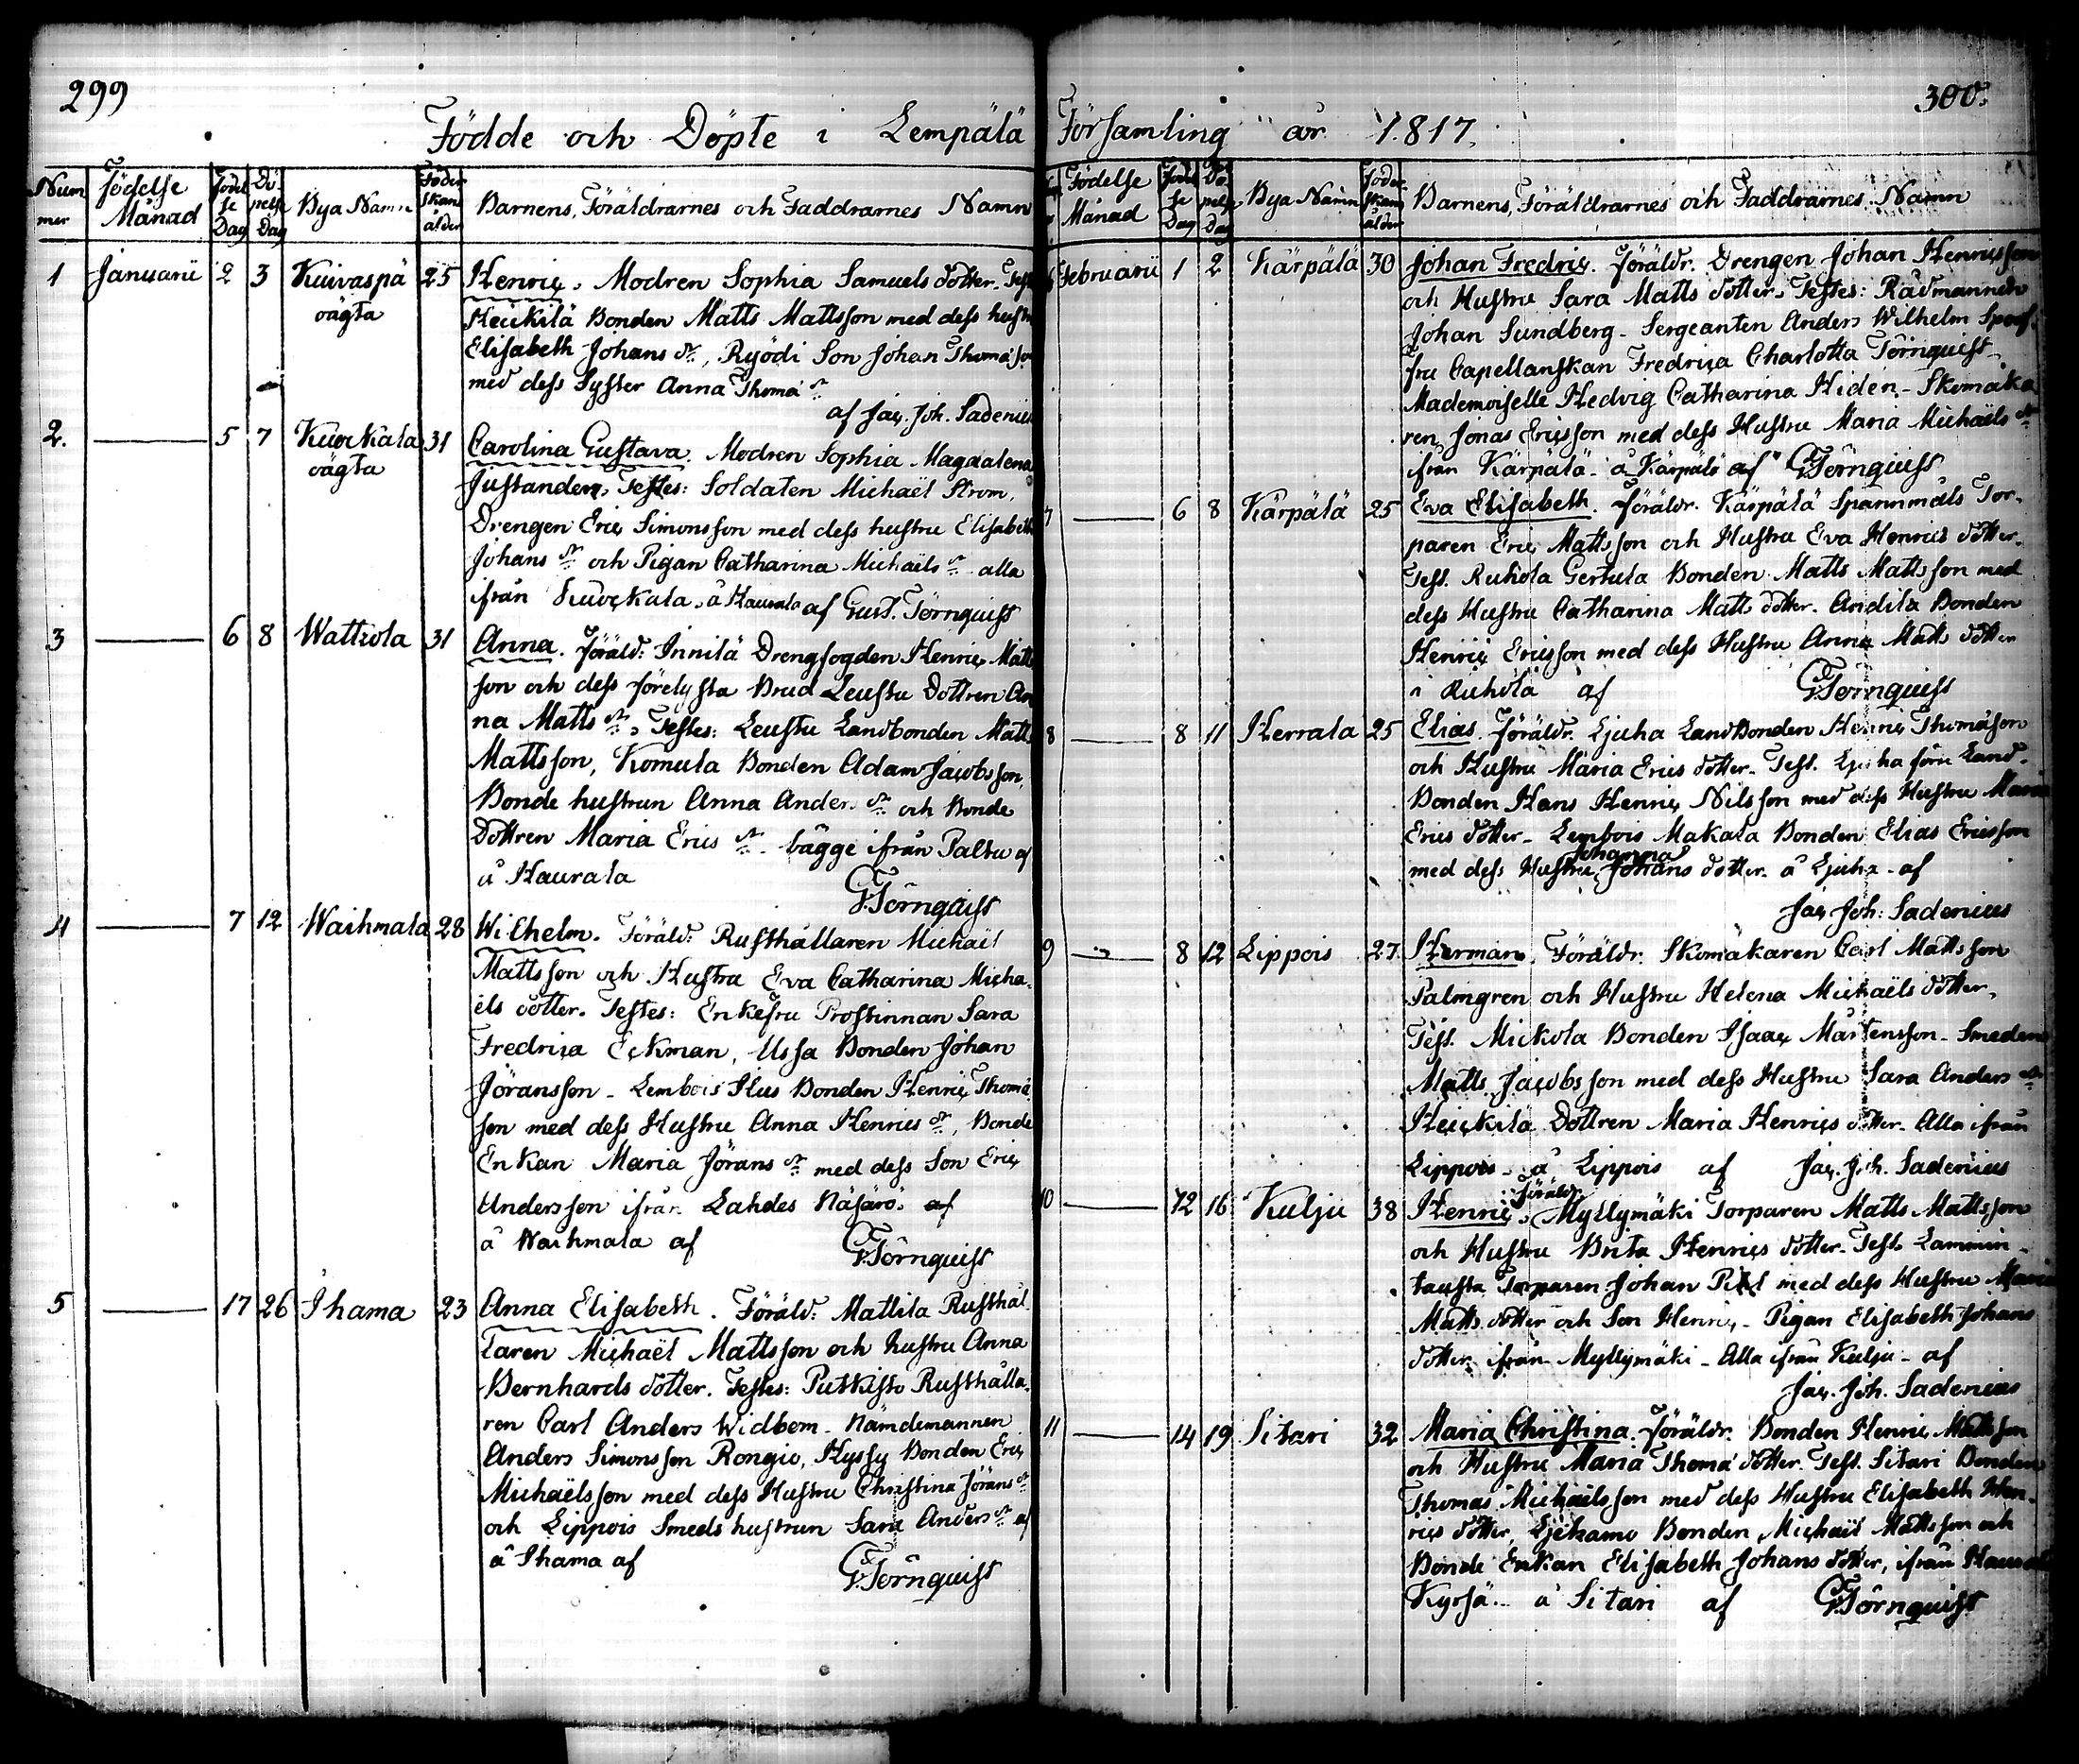 299
300.
Födde och Döpte i Lempälä Församling år 1817.
Num mer
Födelse Månad
Födel se Dag
Dö- pelse Dag
Bya Namn
Föder skans ålder
Barnens, Föräldrarnes och Faddrarnes Namn
1 Januarii 2 3 Kuivaspä oägta 25 Henric. Modren Sophia Samuels dotter. Test
Heickilä Bonden Matts Mattsson med dess hustru
Elisabeth Johans dr, Ryödi Son Johan Thomasson
med dess Syster Anna Thomä dr
af Jac. Joh. Sadenius
2. 5 7 Kuockala oägta 31 Carolina Gustava. Modren Sophia Magdalena
Justander, Testes: Soldaten Michaël Strom,
Drengen Eric Simonsson med dess hustru Elisabeth
Johans dr och Pigan Catharina Michaëls dr alla
ifrån Kuockala, å Haurala af Gust. Törnquist
3 6 8 Wattola 31 Anna. Föräld: Innilä Drengfogden Henric Matts
son och dess förelysta Brud Leustu Dottren An
na Matts dr, Testes: Leustu Landbonden Matts
Mattsson, Komula Bonden Adam Jacobsson,
Bonde hustrun Anna Anders dr och Bonde
Dottren Maria Erics dr bägge ifrån Paltu af
å Haurala
GTörnquist
4 7 12 Waihmala 28 Wilhelm. Föräld: Rusthållaren Michaël
Mattsson och Hustru Eva Catharina Micha-
ëls dotter. Testes: Enkefru Prostinnan Sara
Fredrica Eckman, Ussa Bonden Johan
Jöransson - Lembois Ilus Bonden Henric Thomæ
son med dess Hustru Anna Henrics dr, Bonde
Enkan Maria Jörans dr med dess Son Eric
Andersson ifrån Lahdes Näsärö. af
å Waihmala af
GTörnquist
5 17 26 Ihama 23 Anna Elisabeth. Föräld: Mattila Rusthål
laren Michaël Mattsson och hustru Anna
Bernhards dotter. Testes: Putkisto Rusthålla-
ren Carl Anders Widbom - Nämdemannen
Anders Simonsson Rongio, Hyssy Bonden Eric
Michaëlsson med dess Hustru Christina Jörans dr
och Lippois Smeds hustrun Sara Anders dr af
å Ihama af
GTörnquist
Födelse Månad
Födel se Dag
Dö- pelse Dag
Bya Namn
Föder- skans ålder
Barnens, Föräldrarnes och Faddrarnes Namn
6 Februarii 1 2 Kärpälä 30 Johan Fredric. Föräldr. Drengen Johan Henricsson
och Hustru Sara Matts dotter. Testes: Rådmannen
Johan Sundberg - Sergeanten Anders Wilhelm
fru Capellanskan Fredrica Charlotta Törnquist -
Mademoiselle Hedvig Catharina Hidén - Skomaka
ren Jonas Ericsson med dess Hustru Maria Michaëls dr
ifrån Kärpälä - å Kärpälä af GTörnquist
7 6 8 Kärpälä 25 Eva Elisabeth. Föräldr. Kärpälä Spannmåls Tor-
paren Eric Mattsson och Hustru Eva Henrics dotter.
Test. Ruhola Gertula Bonden Matts Mattsson med
dess Hustru Catharina Matts dotter. Andila Bonden
Henric Ericsson med dess Hustru Anna Matts dotter
i Ruhola af GTörnquist
8 8 11 Herrala 25 Elias. Föräldr. Ljuha Landbonden Henric Thomasson
och Hustru Maria Erics dotter. Test. Ljuha förre Land-
Bonden Hans Henric Nilsson med dess Hustru Maria
Erics dotter - Lembois Makala Bonden Elias Ericsson
med dess Hustru Johanna Johans dotter. å Ljuha - af
Jac. Joh: Sadenius
9 8 12 Lippois 27. Herman. Föräldr. Skomakaren Carl Mattsson
Palmgren och Hustru Helena Michaëls dotter,
Test. Mickola Bonden Isaac Mårtensson - Smeden
Matts Jacobsson med dess Hustru Sara Anders dr
Heickilä Dottren Maria Henrics dotter. Alla ifrån
Lippois - å Lippois af Jac. Joh. Sadenius
10 12 16 Kulju 38 Henric. Föräldr. Myllymäki Torparen Matts Mattsson
och Hustru Brita Henrics dotter. Test. Lammin-
tausta Torparen Johan med dess Hustru Maria
Matts dotter och Son Henric - Pigan Elisabeth Johans
dotter ifrån Myllymäki - Alla ifrån Kulju - af
Jac. Joh. Sadenius
11 14 19 Sitari 32 Maria Christina. Föräldr. Bonden Henric Mattsson
och Hustru Maria Thomæ dotter. Test. Sitari Bonden
Thomas Michaëlsson med dess Hustru Elisabeth Hen-
rics dotter, Ljekamo Bonden Michaël Mattsson och
Bonde Enkan Elisabeth Johans dotter, ifrån
Kyrsä - å Sitari af GTörnquist